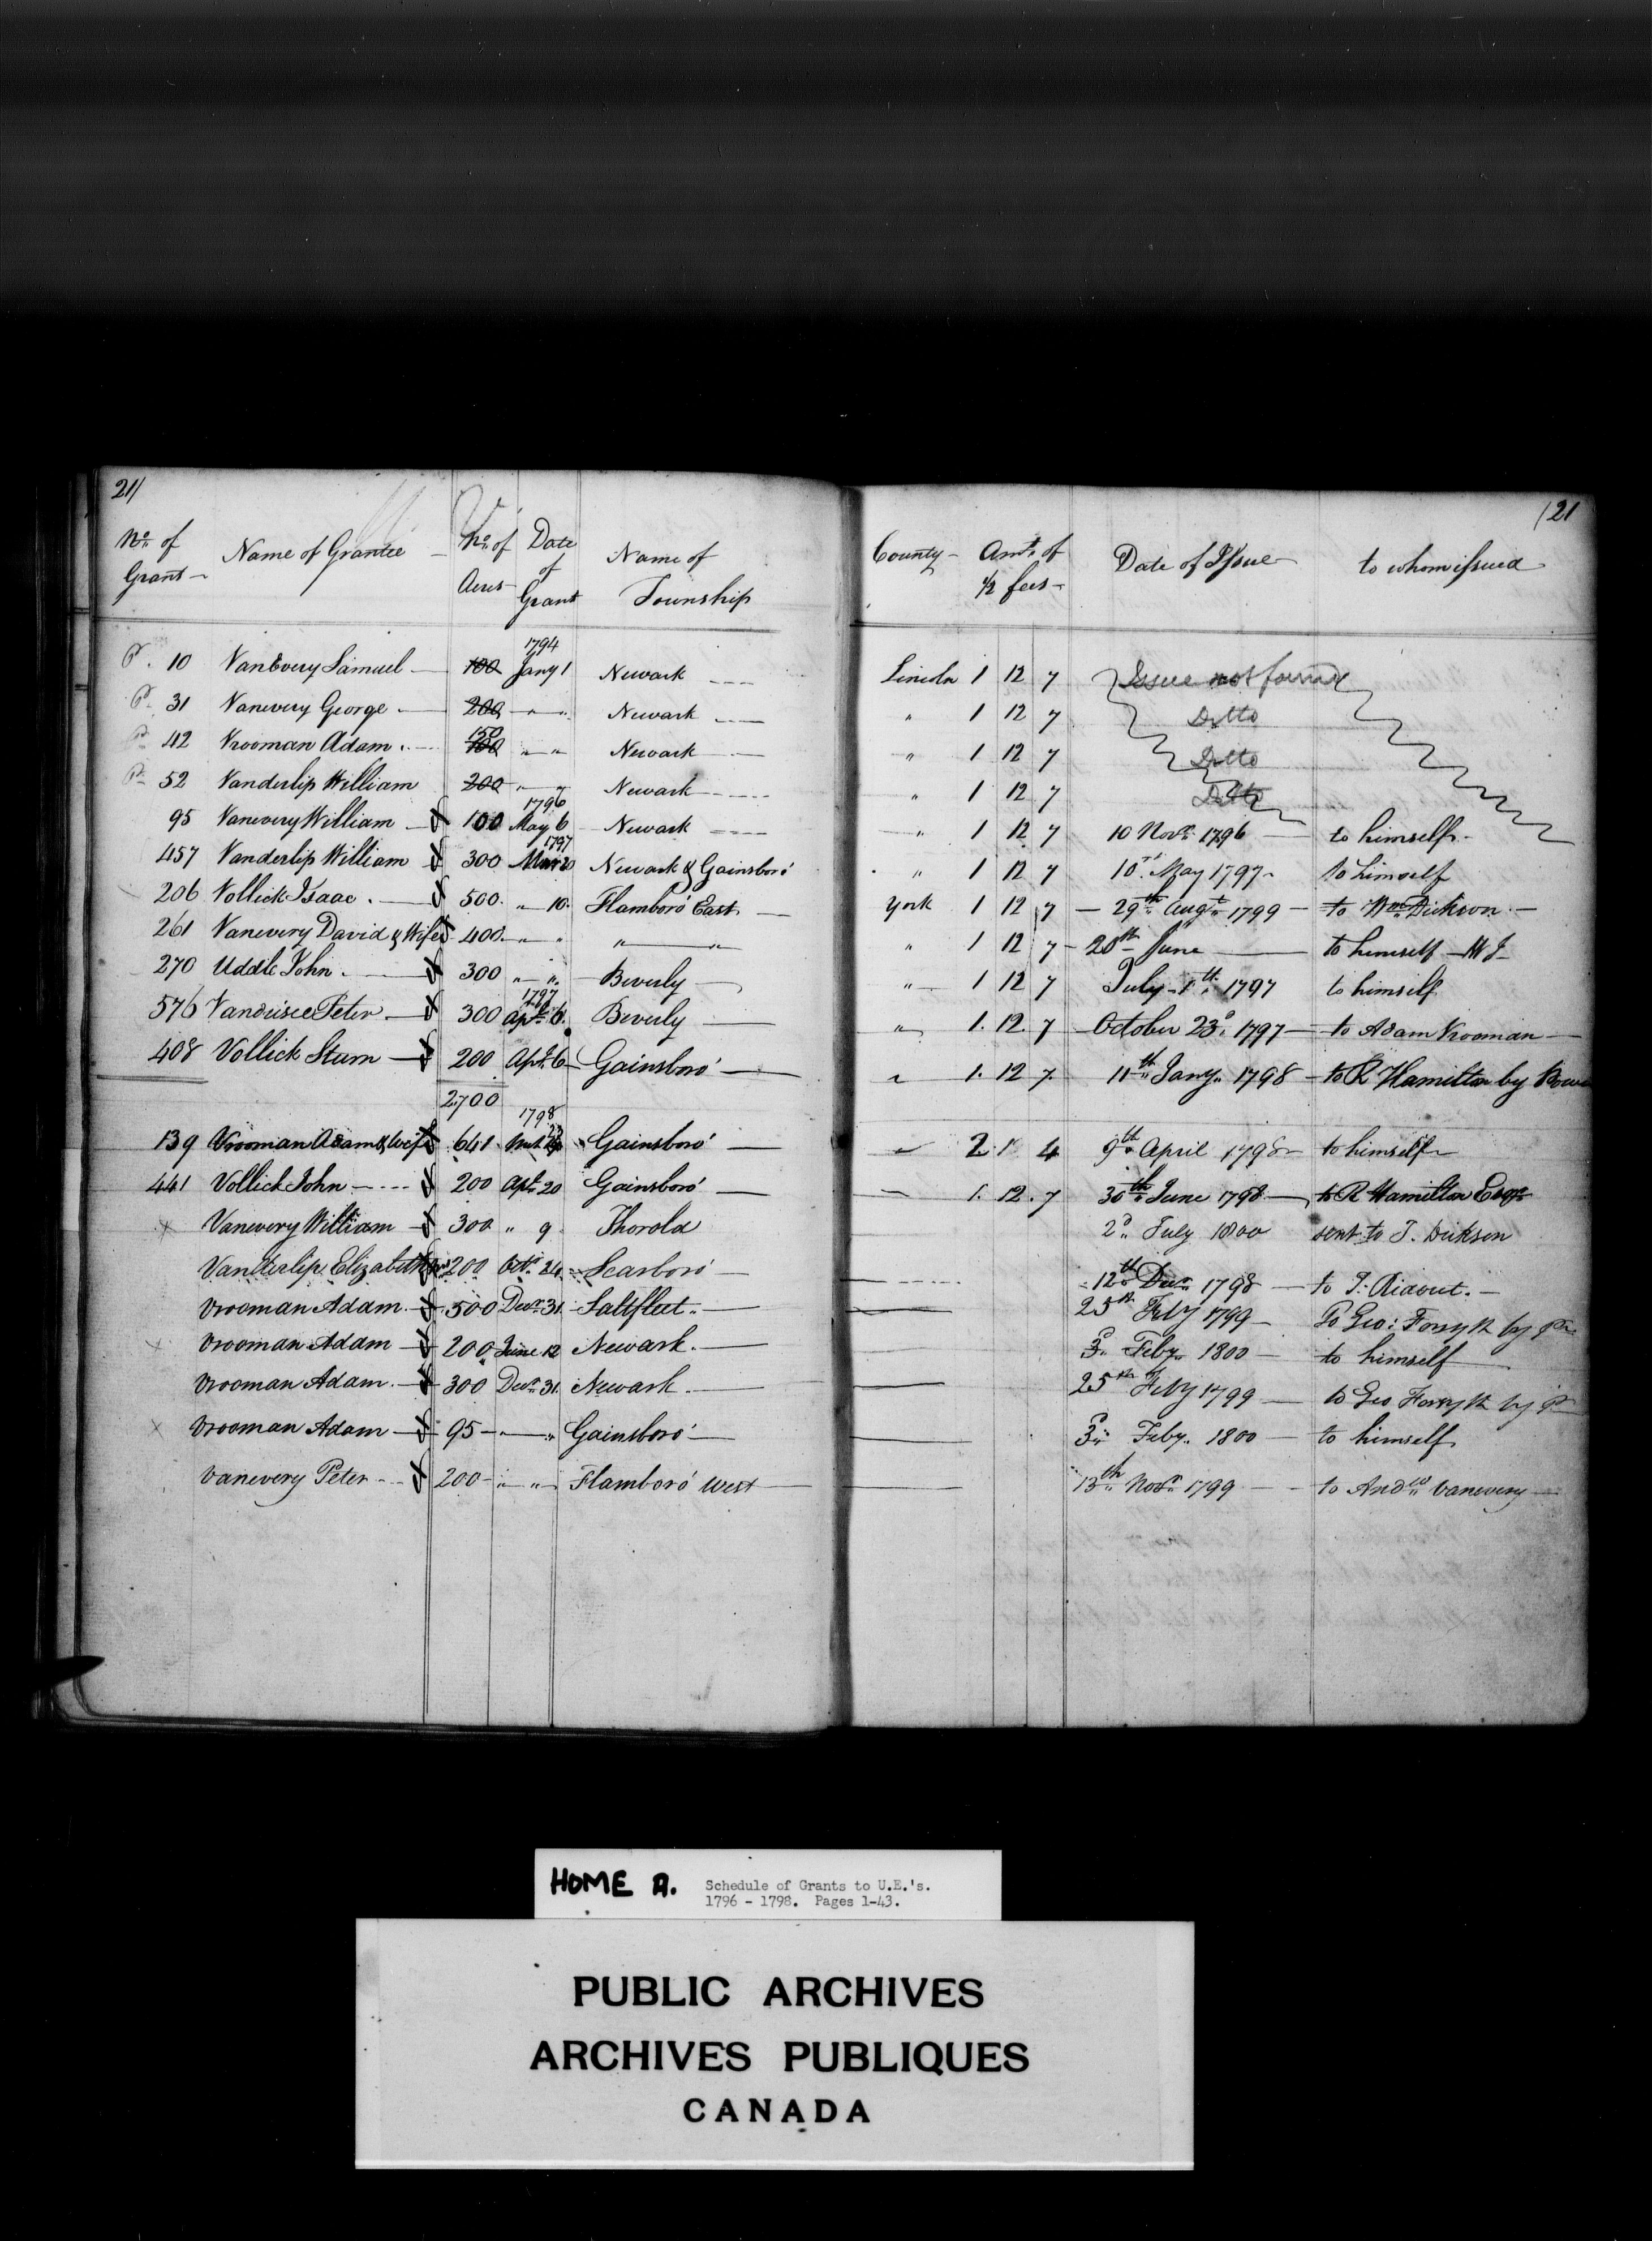 21/
V
No. of Grant Name of Grantee No. of Acres Date of Grant Name of Township
P. 10 VanEvery Samuel 100 1794 Jany 1 Newark
P. 31 Vanevery George 200 " " Newark
P. 42 Vrooman Adam 150 100 " " Newark
P. 52 Vanderlip William 200 " " Newark
95 Vanevery William 100 1796 May 6 Newark
457 Vanderlip William 300 1797 Mar 20 Newark & Gainsboro'
206 Vollick Isaac 500 " 10 Flamboro' East
261 Vanevery David & Wife 400 " " " "
270 Uddle John 300 " " Beverly
576 Peter 300 1797 Apl. 6 Beverly
408 Vollick Sturn 200 Apl. 6 Gainsboro'
2700
139 Vrooman Adam & Wife 641 1798 Gainsboro'
441 Vollick John 200 Apl. 20 Gainsboro'
x Vanevery William 300 " 9 Thorold
Vanderlip Elizabeth 200 Octr. 24 Scarboro'
Vrooman Adam 500 Decr. 31 Saltfleet
x Vrooman Adam 200 June 12 Newark
Vrooman Adam 300 Decr. 31 Newark
x Vrooman Adam 95 " " Gainsboro'
Vanevery Peter 200 " " Flamboro' West
/21
County Amt. of 1/2 fees Date of Issue to whom issued
Lincoln 1 12 7 Issue not found
" 1 12 7 Ditto
" 1 12 7 Ditto
" 1 12 7 Ditto
" 1 12 7 10 Novr. 1796 to himself
" 1 12 7 10th May 1797 to himself
York 1 12 7 29th Augt. 1799 to Wm. Dickson
" 1 12 7 20th June to himself W J
" 1 12 7 July 1th 1797 to himself
" 1. 12. 7 October 23d. 1797 to Adam Vrooman
" 1. 12 7. 11th Jany. 1798 to R Hamilton by
" 2. 1 4 9th April 1798 to himself
1. 12. 7 30th June 1798 to R Hamilton Esqr.
2d. July 1800 sent to T. Dickson
12th Decr. 1798 to T. Ridout.
25th Feby 1799 To Geo: Forsyth by
3d. Feby. 1800 to himself
25th Feby 1799 to Geo Forsyth by
3d. Feby. 1800 to himself
13th Novr. 1799 to Andw. Vanevery
HOME A. Schedule of Grants to U.E.'s.
1796 - 1798. Pages 1-43.
PUBLIC ARCHIVES
ARCHIVES PUBLIQUES
CANADA